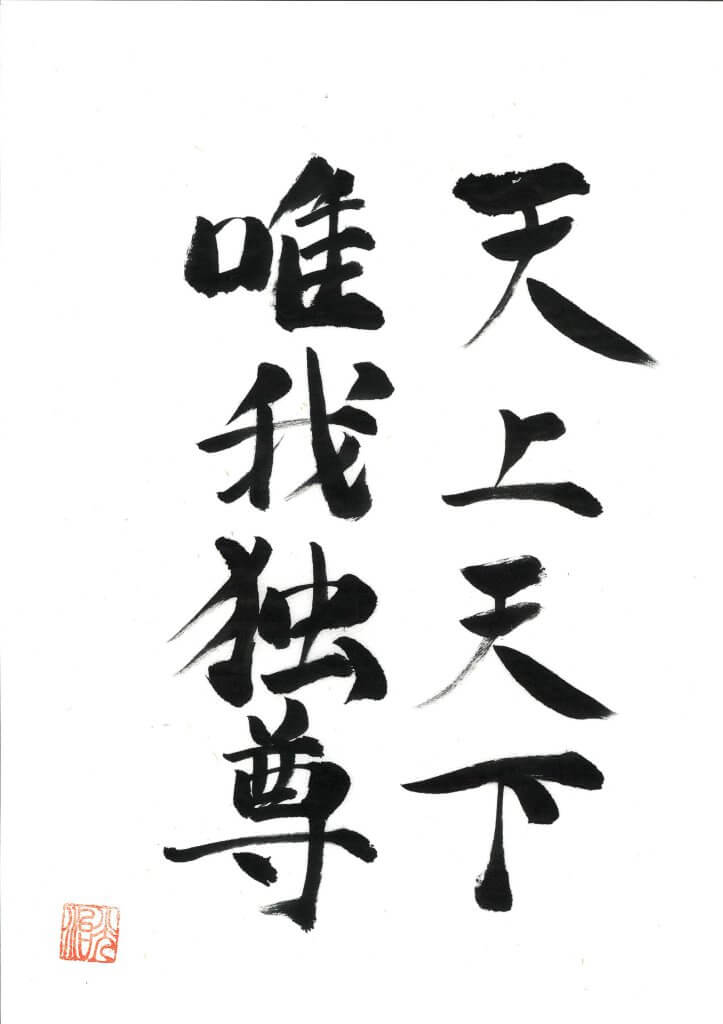 天上天下
唯我独尊